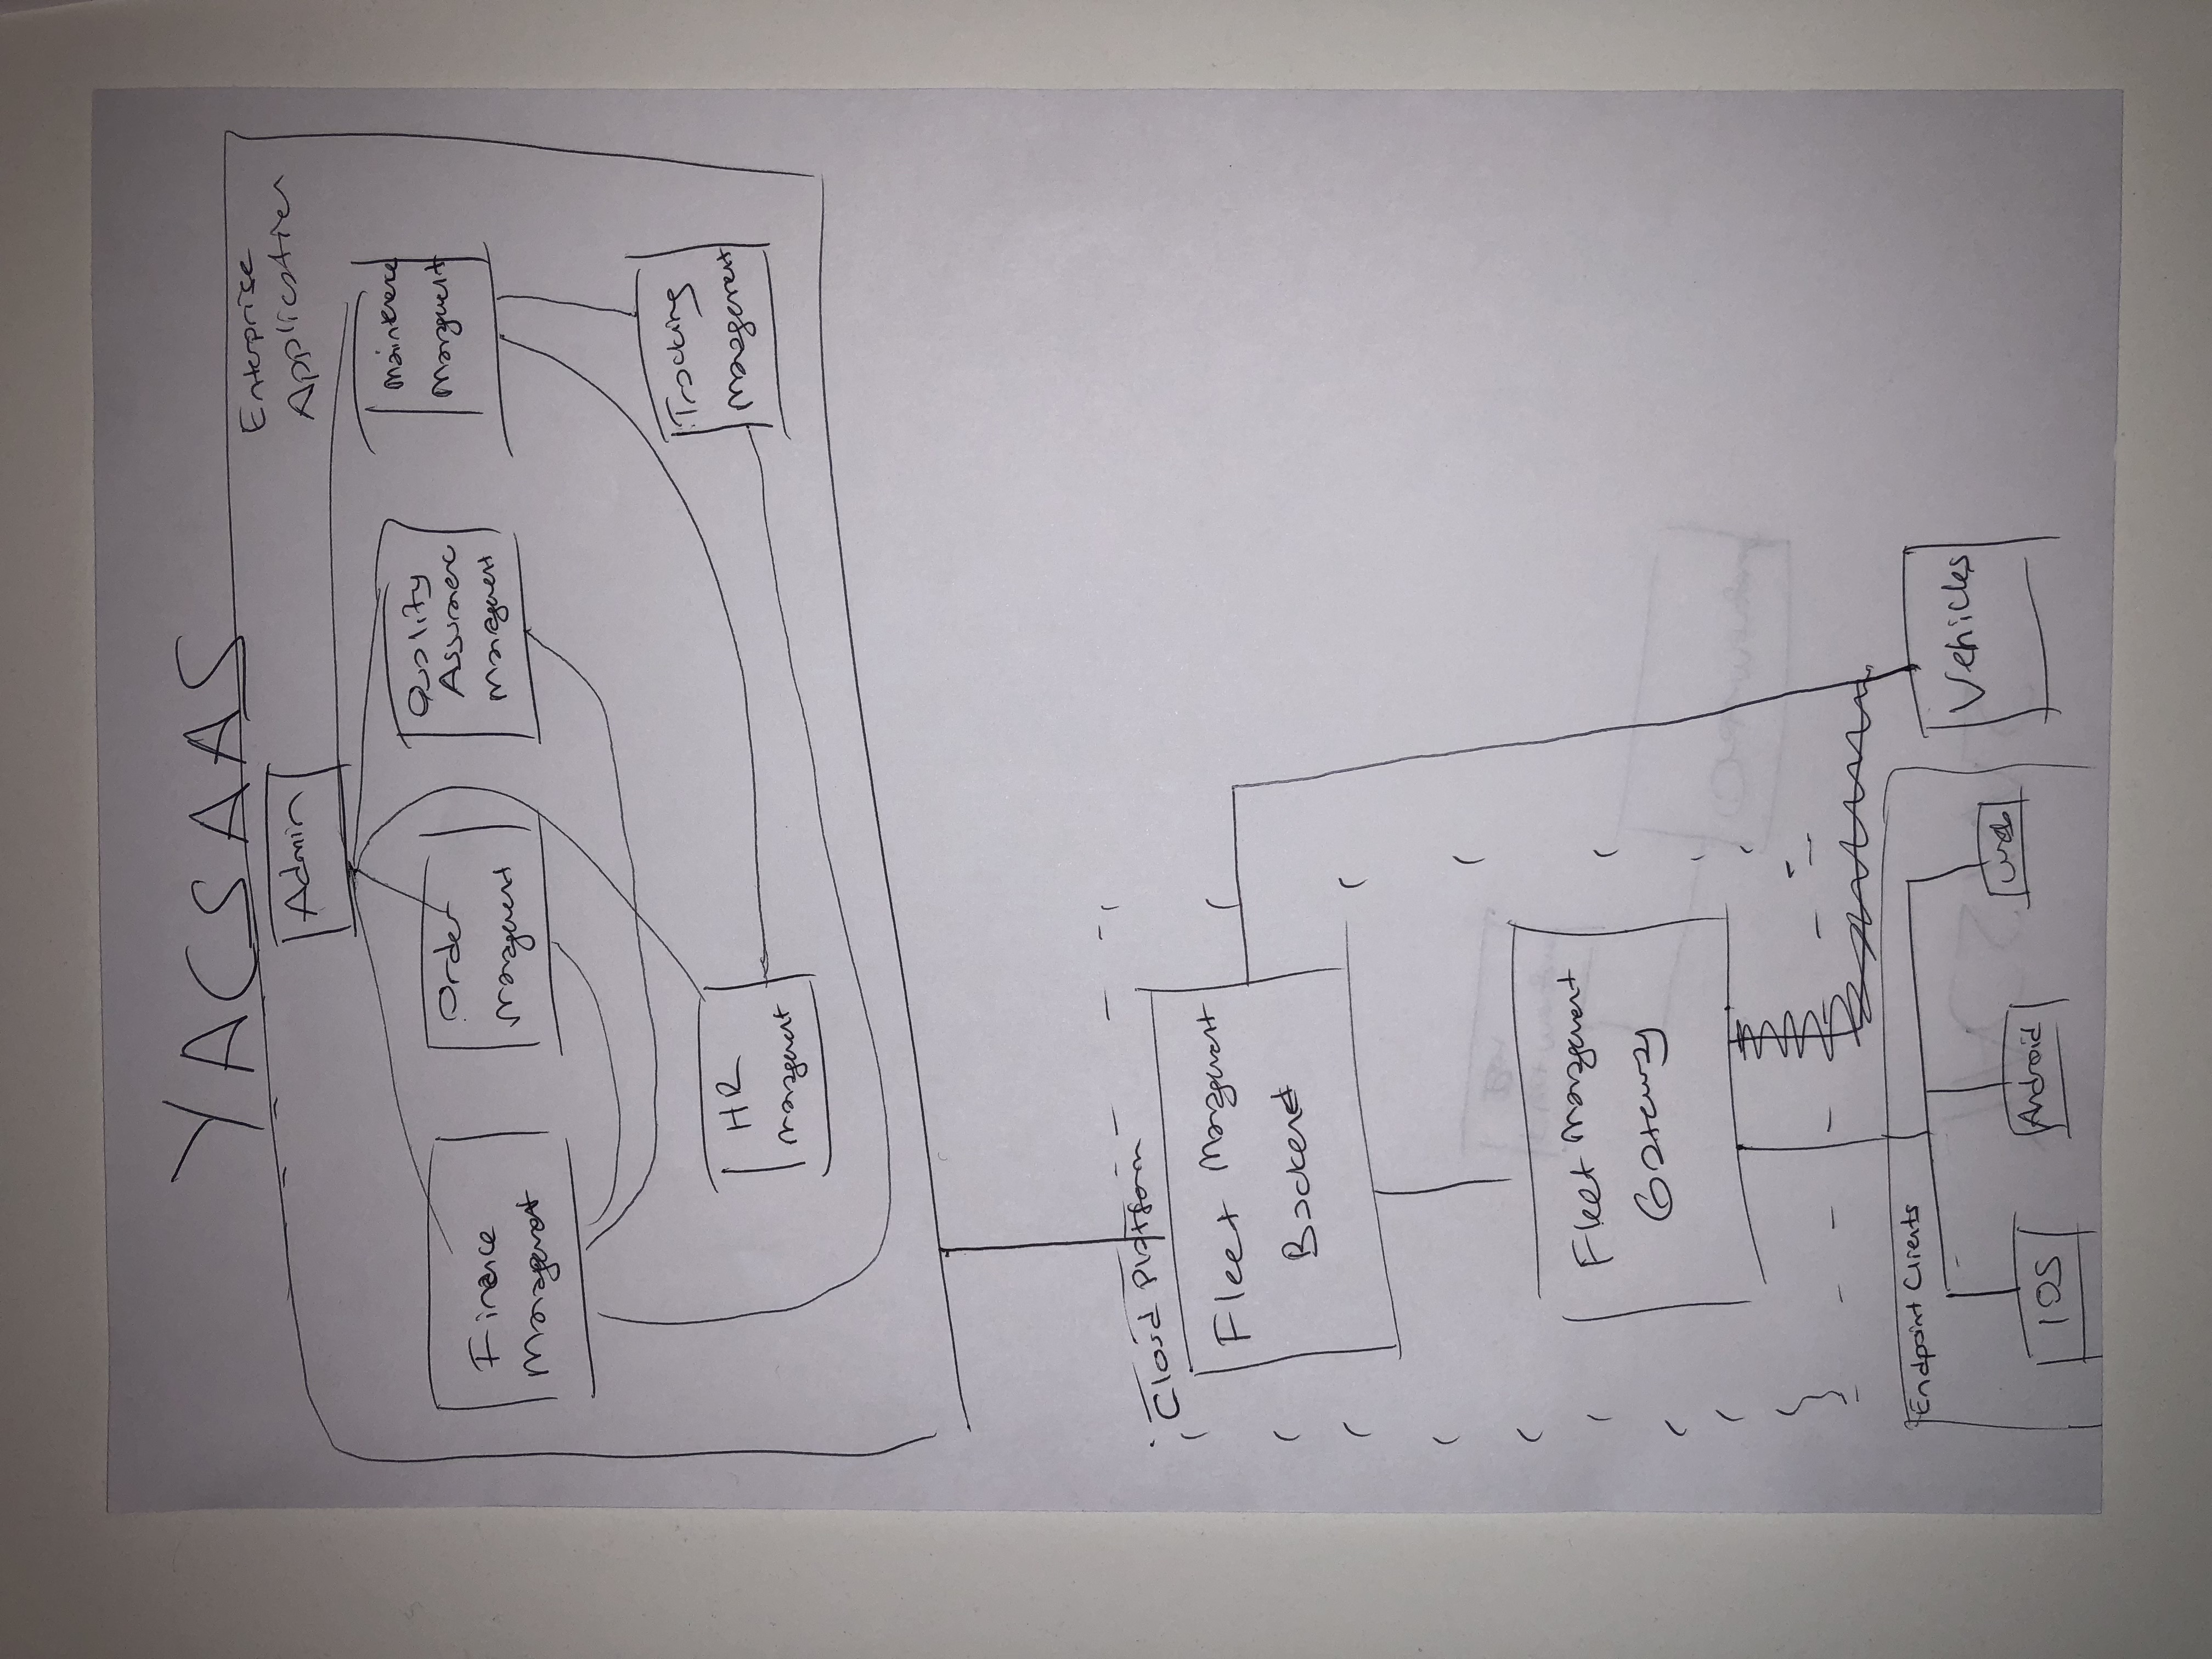 YACSAAS
Enterprise
Application
Admin
Finance
Management
Order
Management
Quality
Assurance
Management
Maintenance
Management
HR
Management
Tracking
Management
Cloud Platform
Fleet Management
Backend
Fleet Management
Gateway
Endpoint Clients
IOS
Android
Web
Vehicles